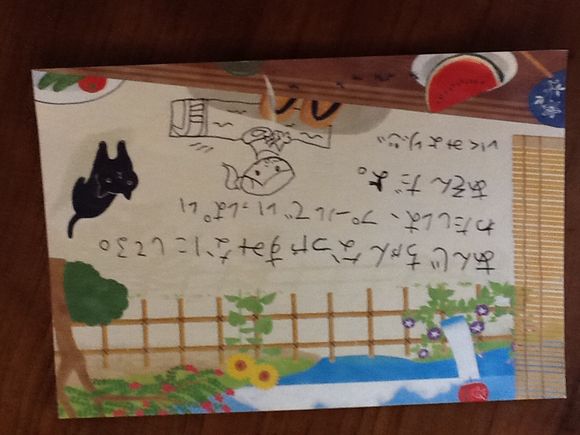 あんじちゃんなつやすみなにしてる。
わたしは、プールでいっぱい
あそんだよ。
いくみより